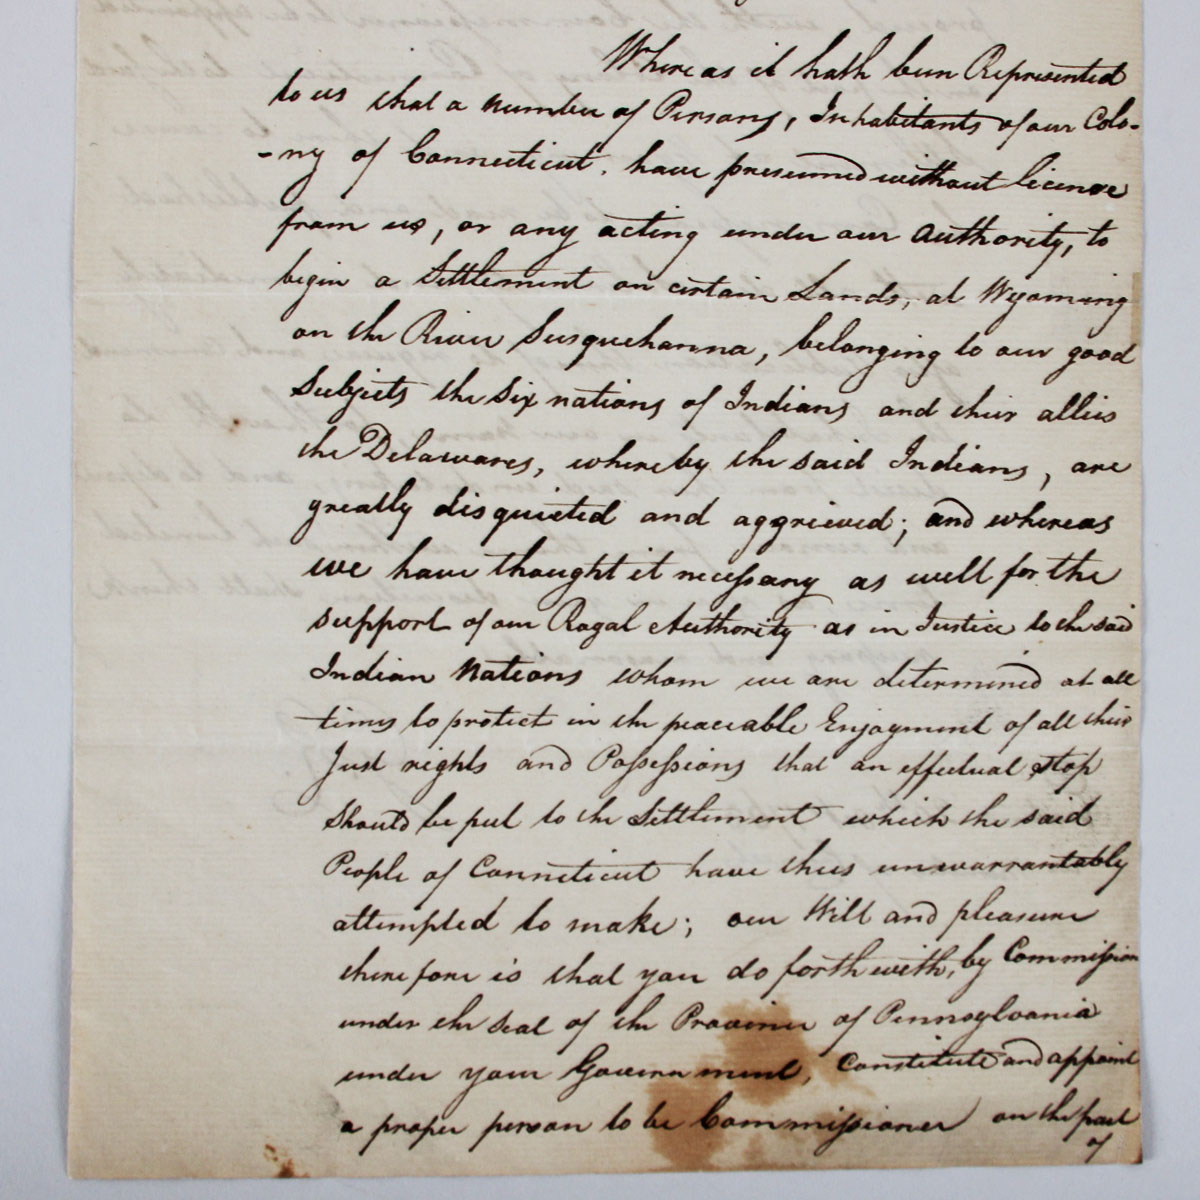 Whereas it hath been Represented
to us that a number of Persons, Inhabitants of our Colo-
-ny of Connecticut. have presumed without licence
from us, or any acting under our authority, to
begin a Settlement on certain Lands, at Wyoming
on the River Susquehanna, belonging to our good
Subjects the Six nations of Indians and their allies
the Delawares, whereby the said Indians, are
greatly disquieted and aggrieved; and whereas
we have thought it necessary as well for the
support of our Royal Authority as in Justice to the said
Indian Nations whom we are determined at all
times to protect in the peaceable Enjoyment of all their
Just rights and Possessions that an effectual stop
should be put to the Settlement which the said
People of Connecticut have thus unwarrantably
attempted to make; our Will and pleasure
therefore is that you do forthwith, by Commission
under the Seal of the Province of Pennsylvania
under your Government, Constitute and appoint
a proper person to be Commissioner on the part
of